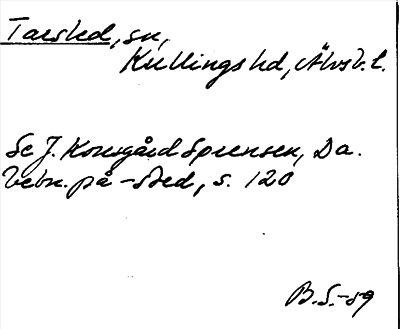 Tarsled, sn,
Kullings hd, Älvsb. l.
Se J. Kousgård Sørensen, Da.
bebn. på -sted, s. 120
B. S. -59